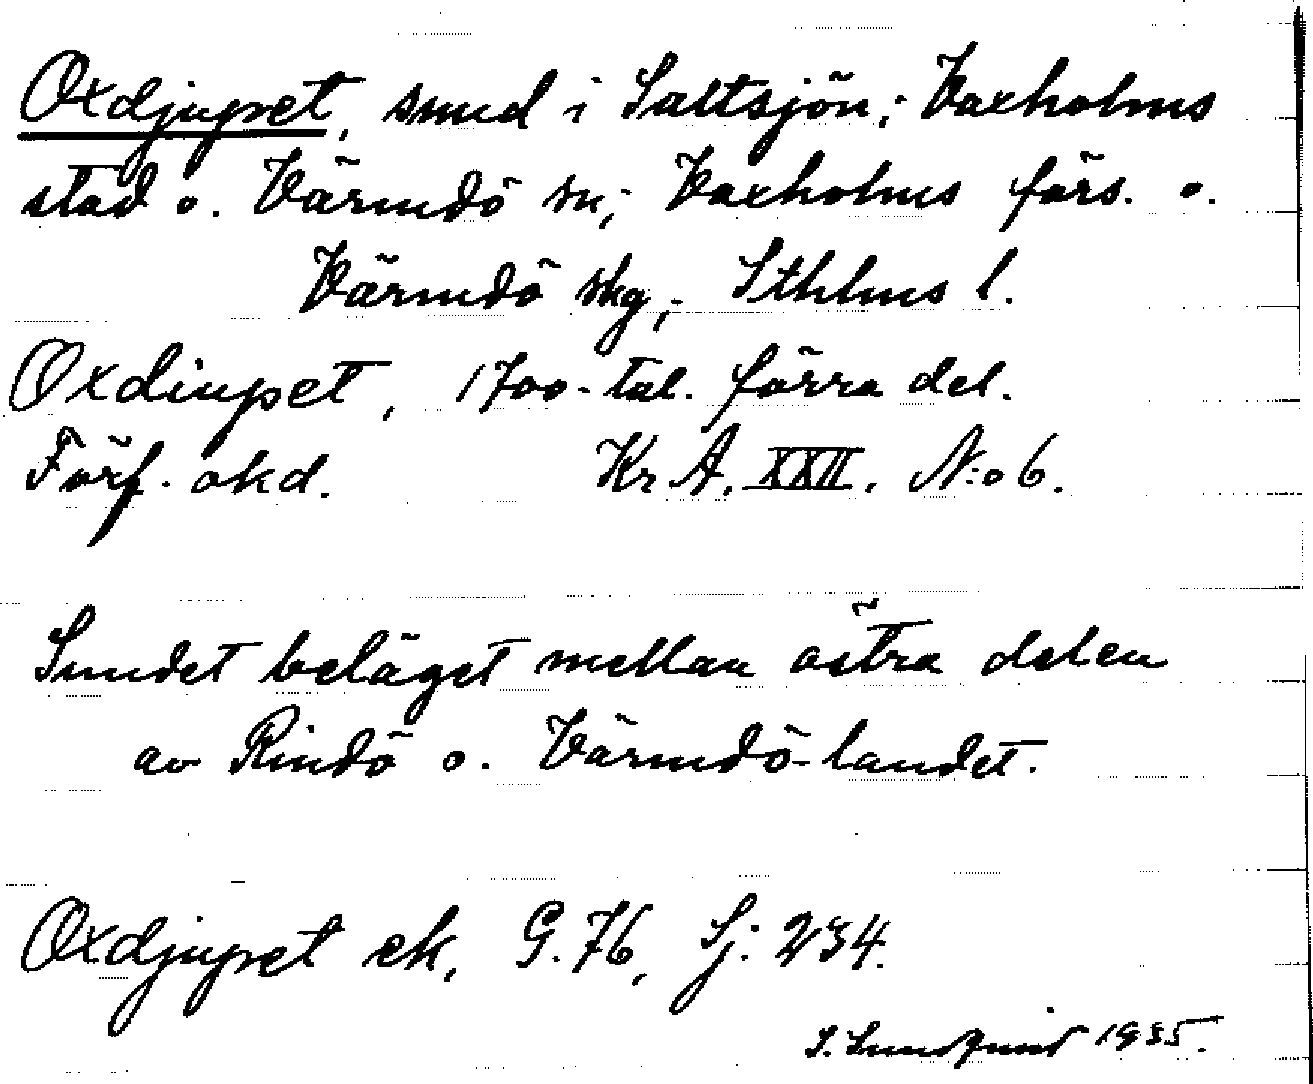 Oxdjupet, sund i Saltsjön; Vaxholms
stad o. Värmdö sn; Vaxholms förs. o.
Värmdö skg; Sthlms l.
Oxdiupet, 1700-tal. förra del.
Förf. okd. Kr A. XXII. N:o 6.
Sundet beläget mellan östra delen
av Rindö o. Värmdö-landet.
Oxdjupet ek. G. 76, Sj: 234.
S. Sundqvist 1935.